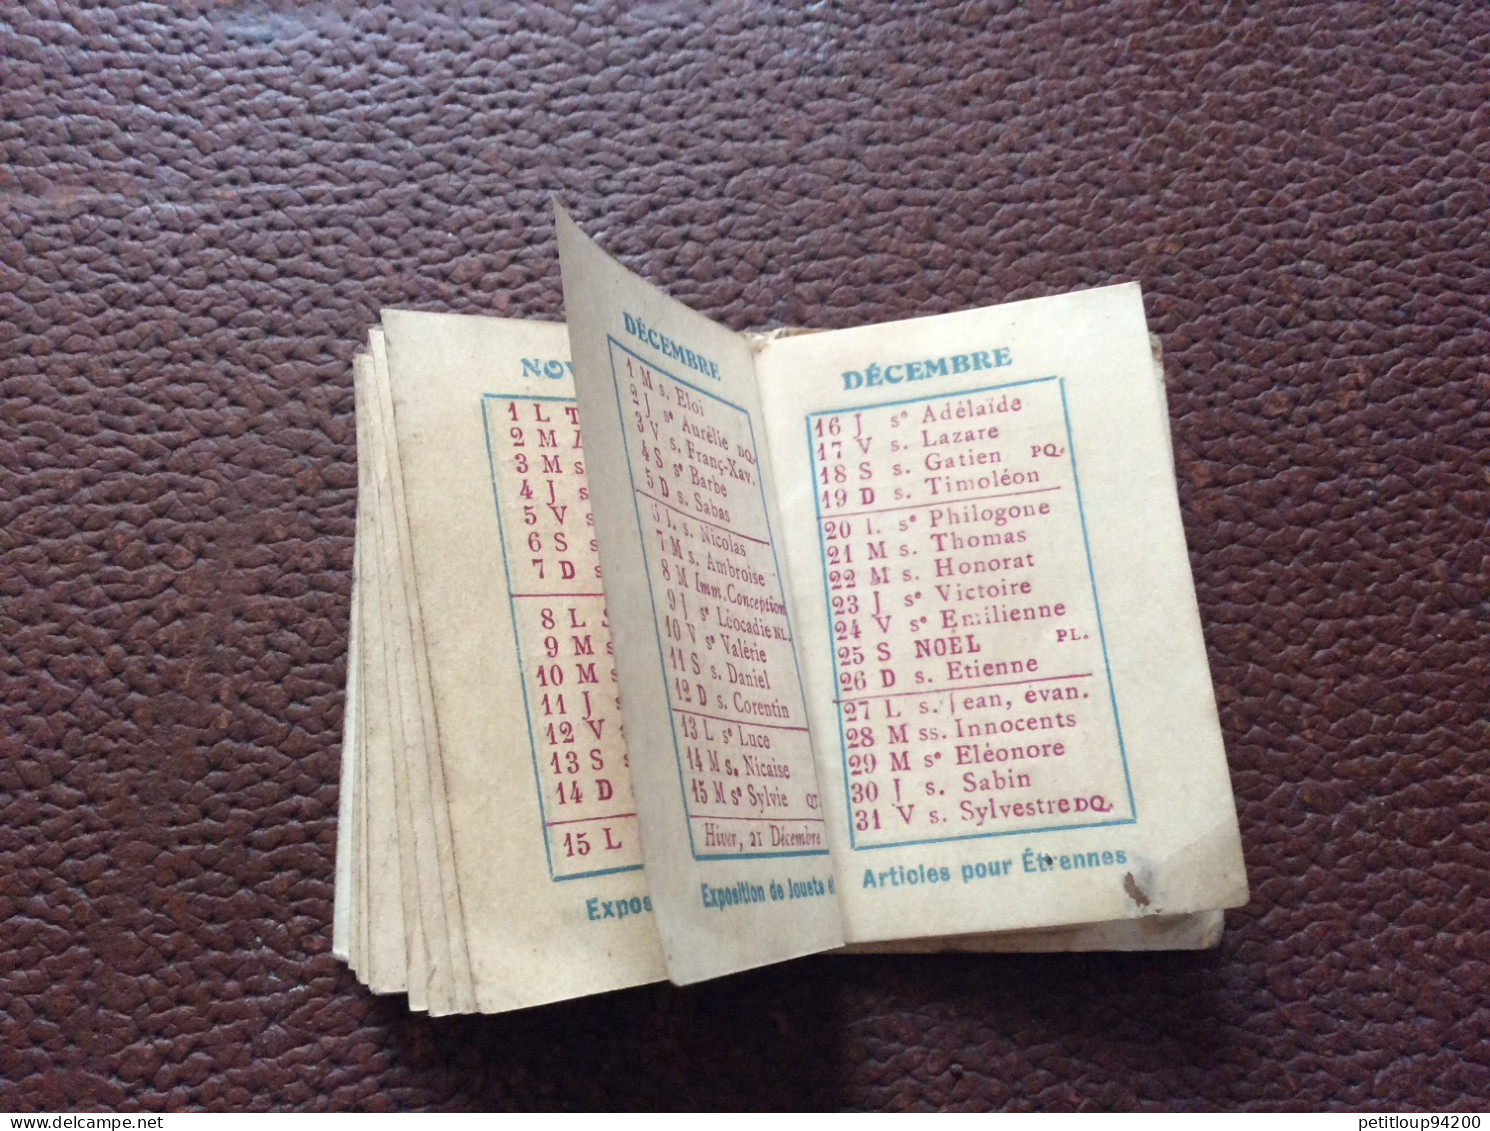 NOV
1 L T
2 M
3 M s
4 J s
5 V s
6 S s
7 D s
8 L S
9 M s
10 M s
11 J s
12 V s
13 S s
14 D s
15 L
Expos
DÉCEMBRE
1 M s. Eloi
2 J sᵉ Aurélie DQ.
3 V s. Franç-Xav.
4 S sᵉ Barbe
5 D s. Sabas
6 L s. Nicolas
7 M s. Ambroise
8 M Imm. Conception
9 J sᵉ Léocadie NL.
10 V sᵉ Valérie
11 S s. Daniel
12 D s. Corentin
13 L sᵉ Luce
14 M s. Nicaise
15 M sᵉ Sylvie QT.
Hiver, 21 Décembre
Exposition de Jouets et
DÉCEMBRE
16 J sᵉ Adélaïde
17 V s. Lazare
18 S s. Gatien PQ.
19 D s. Timoléon
20 L sᵉ Philogone
21 M s. Thomas
22 M s. Honorat
23 J sᵉ Victoire
24 V sᵉ Emilienne
25 S NOËL PL.
26 D s. Etienne
27 L s. Jean, évan.
28 M ss. Innocents
29 M sᵉ Eléonore
30 J s. Sabin
31 V s. Sylvestre DQ.
Articles pour Étrennes
delcampe.net
petitloup94200